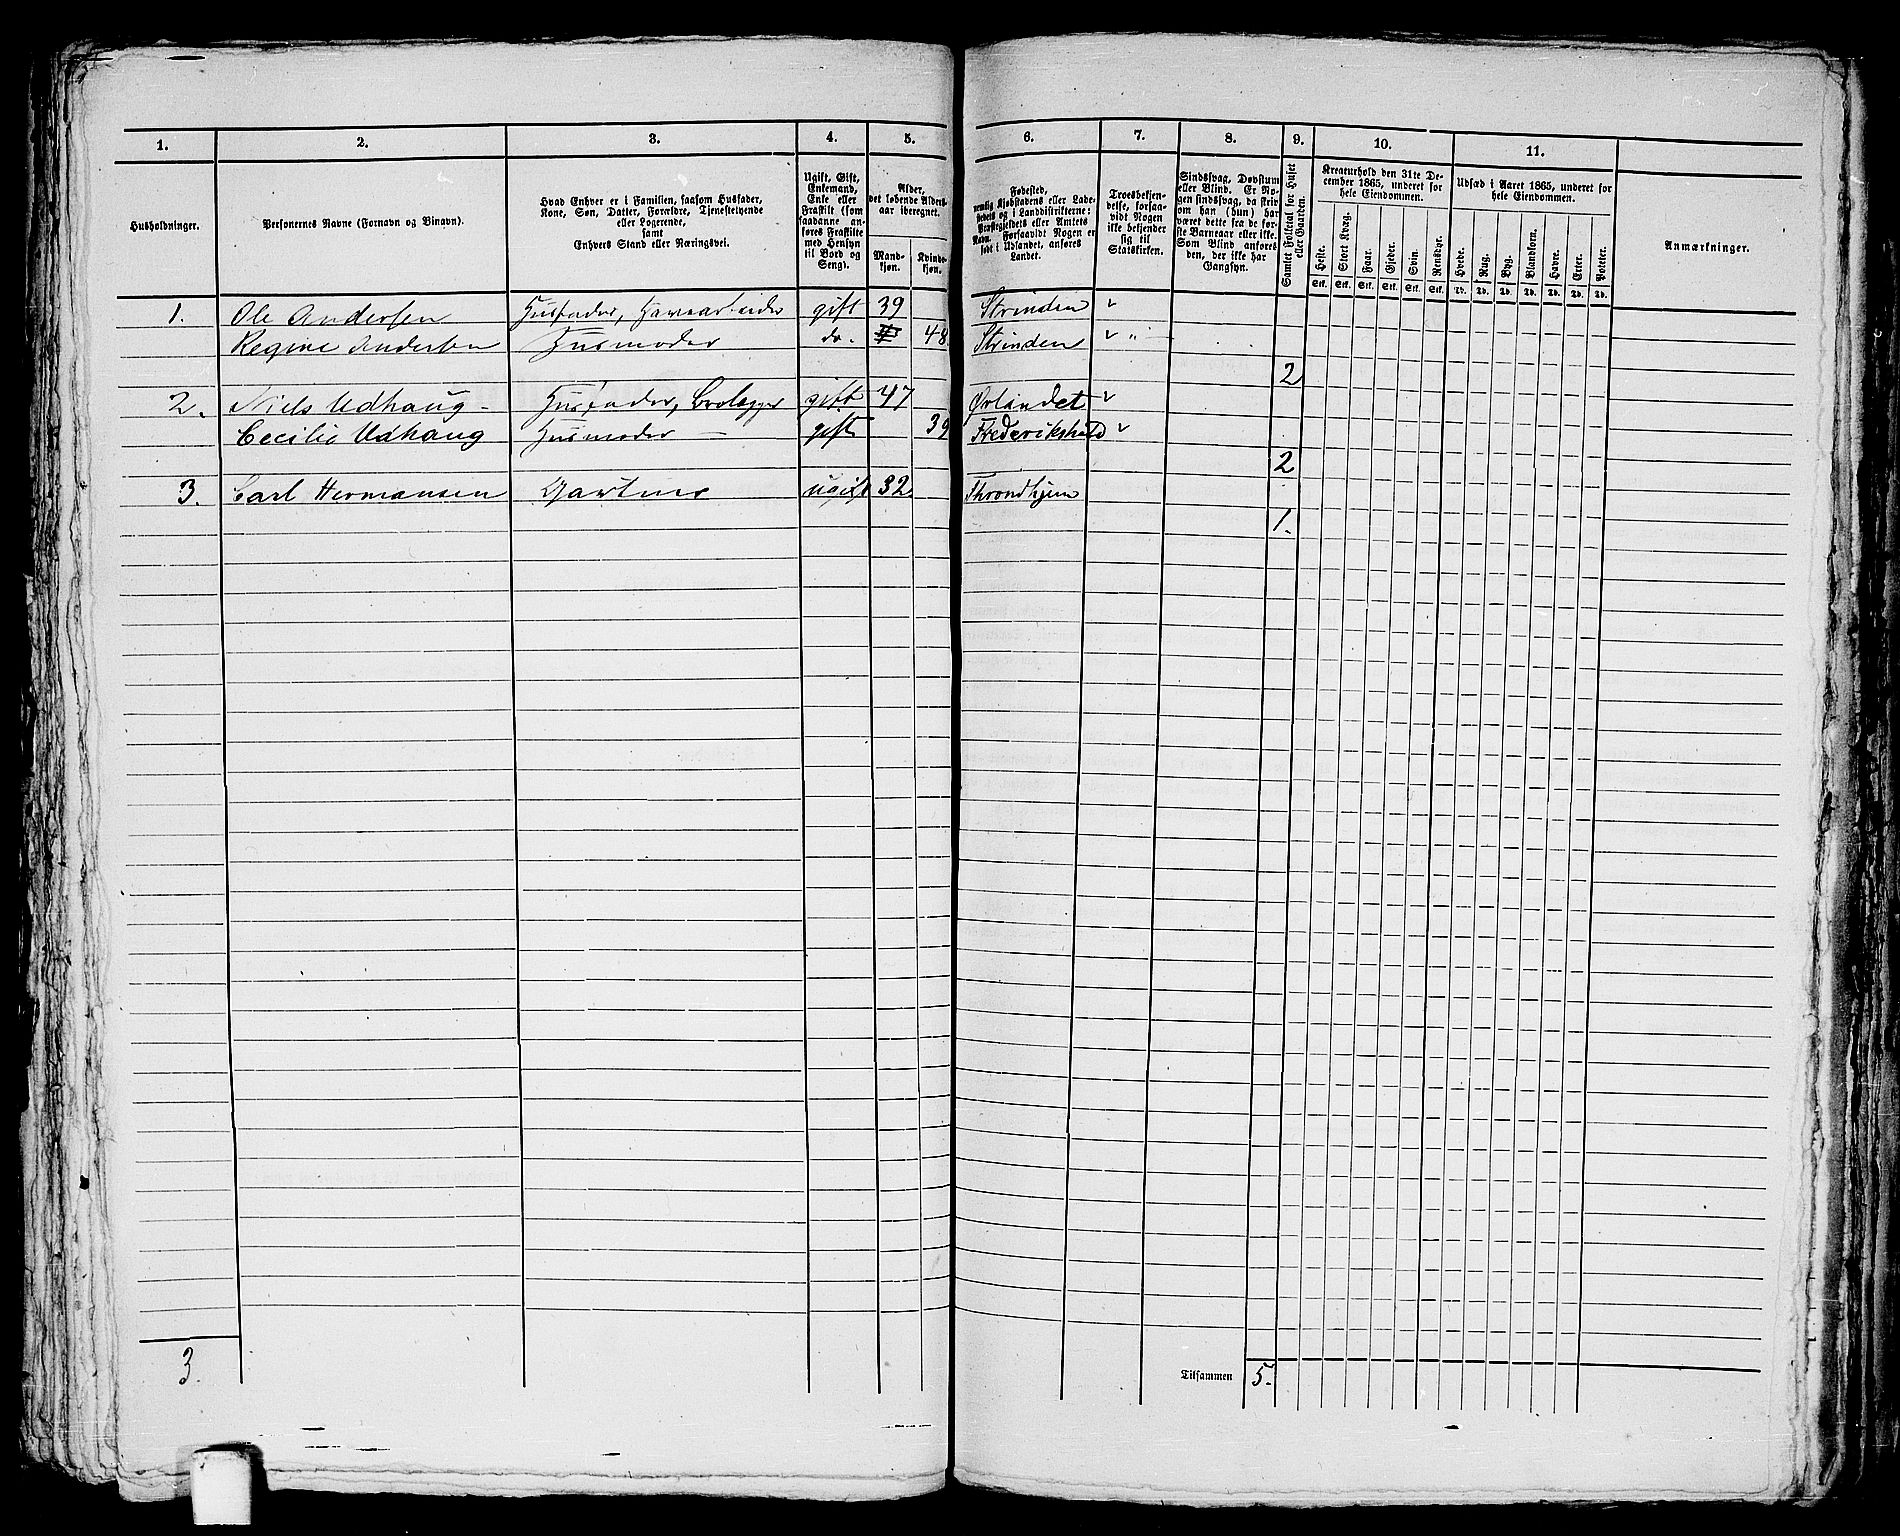 1. 2. 3. 4. 5. 6. 7. 8. 9. 10. 11.
Husholdninger.
Personernes Navne (Fornavn og Binavn).
Hvad Enhver er i Familien, saasom Husfader,
Kone, Søn, Datter, Forældre, Tjenestetyende
eller Logerende,
samt
Enhvers Stand eller Næringsvei.
Ugift, Gift,
Enkemand,
Enke eller
Fraskilt (som
saadanne an-
føres Fraskilte
med Hensyn
til Bord og
Seng).
Alder,
det løbende Alders-
aar iberegnet.
Mand-
kjøn.
Kvinde-
kjøn.
Fødested,
nemlig Kjøbstadens eller Lade-
stedets og i Landdistrikterne:
Præstegjeldets eller Amtets
Navn. Forsaavidt Nogen er
født i Udlandet, anføres
Landet.
Troesbekjen-
delse, forsaa-
vidt Nogen
ikke bekjender
sig til
Statskirken.
Sindssvag, Døvstum
eller Blind. Er No-
gen sindssvag, da skriv
om han (hun) har
været dette fra de før-
ste Barneaar eller ikke.
Som Blind anføres
den, der ikke har
Gangsyn.
Samlet Folketal for Huset
eller Gaarden.
Kreaturhold den 31te De-
cember 1865, underet for
hele Eiendommen.
Heste. Stort Kvæg. Faar. Gjeder. Svin. Rensdyr.
Stk. Stk. Stk. Stk. Stk. Stk.
Udsæd i Aaret 1865, underet for
hele Eiendommen.
Hvede. Rug. Byg. Blandkorn. Havre. Erter. Poteter.
Td. Td. Td. Td. Td. Td. Td.
Anmærkninger.
1. Ole Andersen Husfader, gift 39 Strinden
Regine Andersen Husmoder do. 48 Strinden
2
2. Niels Udhaug - Husfader, Brolægger gift 47 Ørlandet
Cecilie Udhaug Husmoder gift 39 Frederikshald
2
3. Carl Hermansen Gartner ugift 32 Throndhjem
1.
3.
Tilsammen 5.